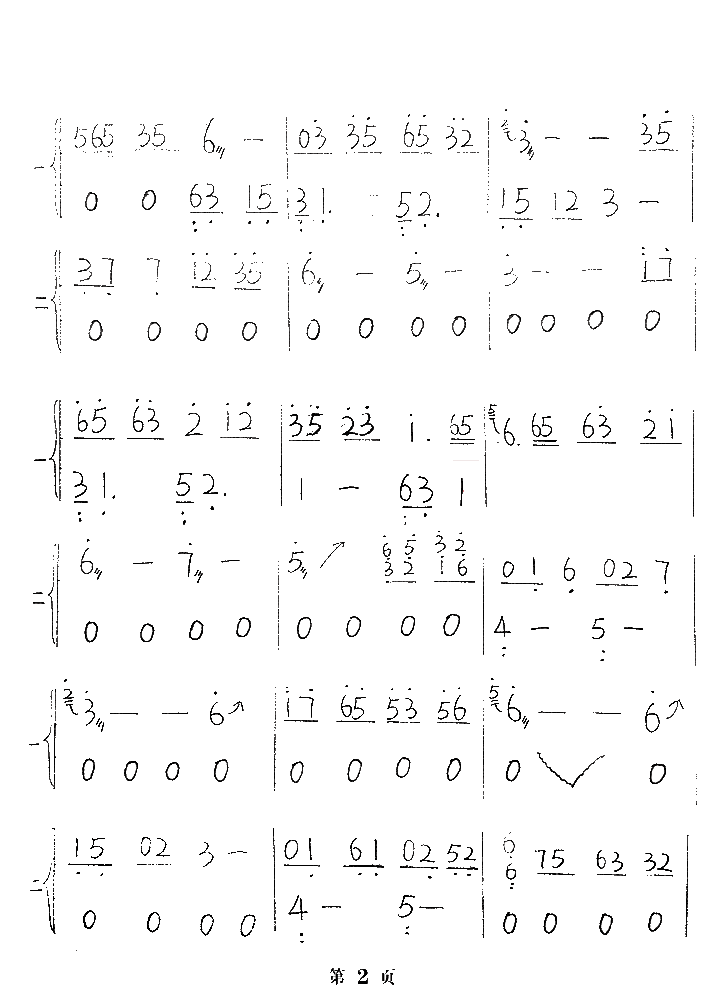 一 565 35 6 - | 03 35 65 32 | 3 - - 35
0 0 63 15 | 31. 52. | 15 12 3 -
二 37 7 12 35 | 6 - 5 - | 3 - - 17
0 0 0 0 | 0 0 0 0 | 0 0 0 0
一 65 63 2 12 | 35 23 1. 65 | 5 6. 65 63 21
31. 52. | 1 - 63 1 |
二 6 - 7 - | 5 ↗ 63 52 31 26 | 01 6 02 7
0 0 0 0 | 0 0 0 0 | 4 - 5 -
一 2 3 - - 6 | 17 65 53 56 | 5 6 - - 6
0 0 0 0 | 0 0 0 0 | 0 0
二 15 02 3 - | 01 61 02 52 | 6 6 75 63 32
0 0 0 0 | 4 - 5 - | 0 0 0 0
第 2 页